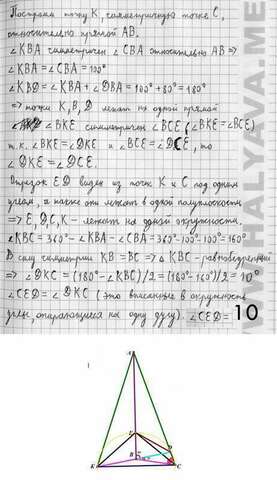 Построим точку К, симметричную точке С,
относительно прямой АВ.
∠КВА симметричен ∠СВА относительно АВ ⇒
∠КВА = ∠СВА = 100°
∠КВД = ∠КВА + ∠DBA = 100° + 80° = 180°
⇒ точки К, В, D лежат на одной прямой
∠ВКЕ симметричен ∠ВСЕ (∠ВКЕ = ∠ВСЕ)
т.к. ∠ВКЕ = ∠DKE и ∠ВСЕ = ∠DCE, то
∠DKE = ∠DCE.
Отрезок ED виден из точек К и С под одним
углом, а также они лежат в одной полуплоскости
⇒ Е, D, С, К - лежат на одной окружности.
∠КВС = 360° - ∠КВА - ∠СВА = 360° - 100° - 100° = 160°
В силу симметрии КВ = ВС ⇒ △ КВС - равнобедренный
⇒ ∠DKC = (180° - ∠КВС)/2 = (180° - 160°)/2 = 10°
∠CED = ∠DKC (это вписанные в окружность
углы, опирающиеся на одну дугу). ∠CED = 10
WHALYAVA.ME
A
E
B
D
K
C